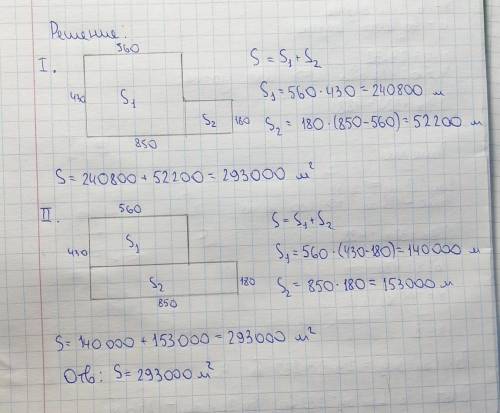 Решение:
I.
560
430
S₁
S₂
180
850
S = S₁ + S₂
S₁ = 560 · 430 = 240800 м
S₂ = 180 · (850 - 560) = 52200 м
S = 240800 + 52200 = 293000 м²
II.
560
430
S₁
S₂
180
850
S = S₁ + S₂
S₁ = 560 · (430 - 180) = 140000 м
S₂ = 850 · 180 = 153000 м
S = 140000 + 153000 = 293000 м²
Отв: S = 293000 м²